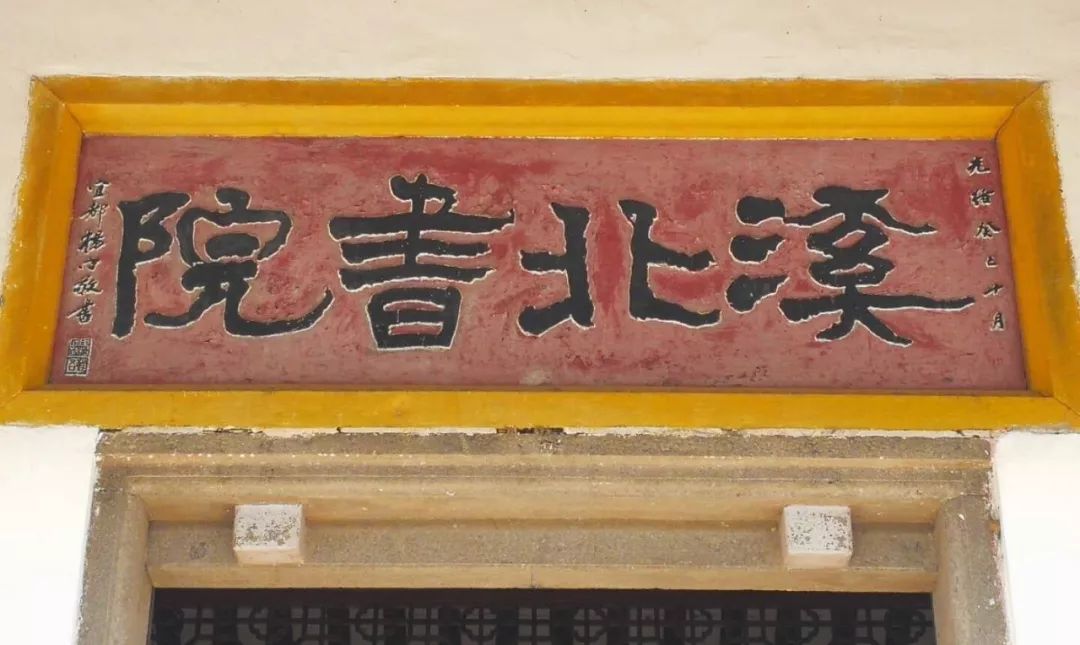 光緒癸巳十月
溪北書院
宜都楊守敬書